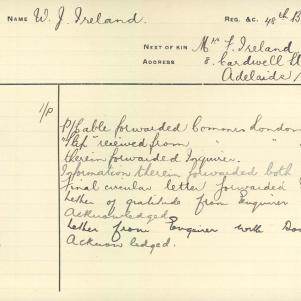 NAME W. J. Ireland. REG. &C. 48th B
NEXT OF KIN Mrs F. Ireland
ADDRESS 8. Cardwell St
Adelaide
1/p
P/Cable forwarded Commrs London
"Slip" received from " "
therein forwarded Inquirer.
Information therein forwarded both
Final circular letter forwarded
Letter of gratitude from Enquirer
Acknowledged.
Letter from Enquirer with
Acknowledged.